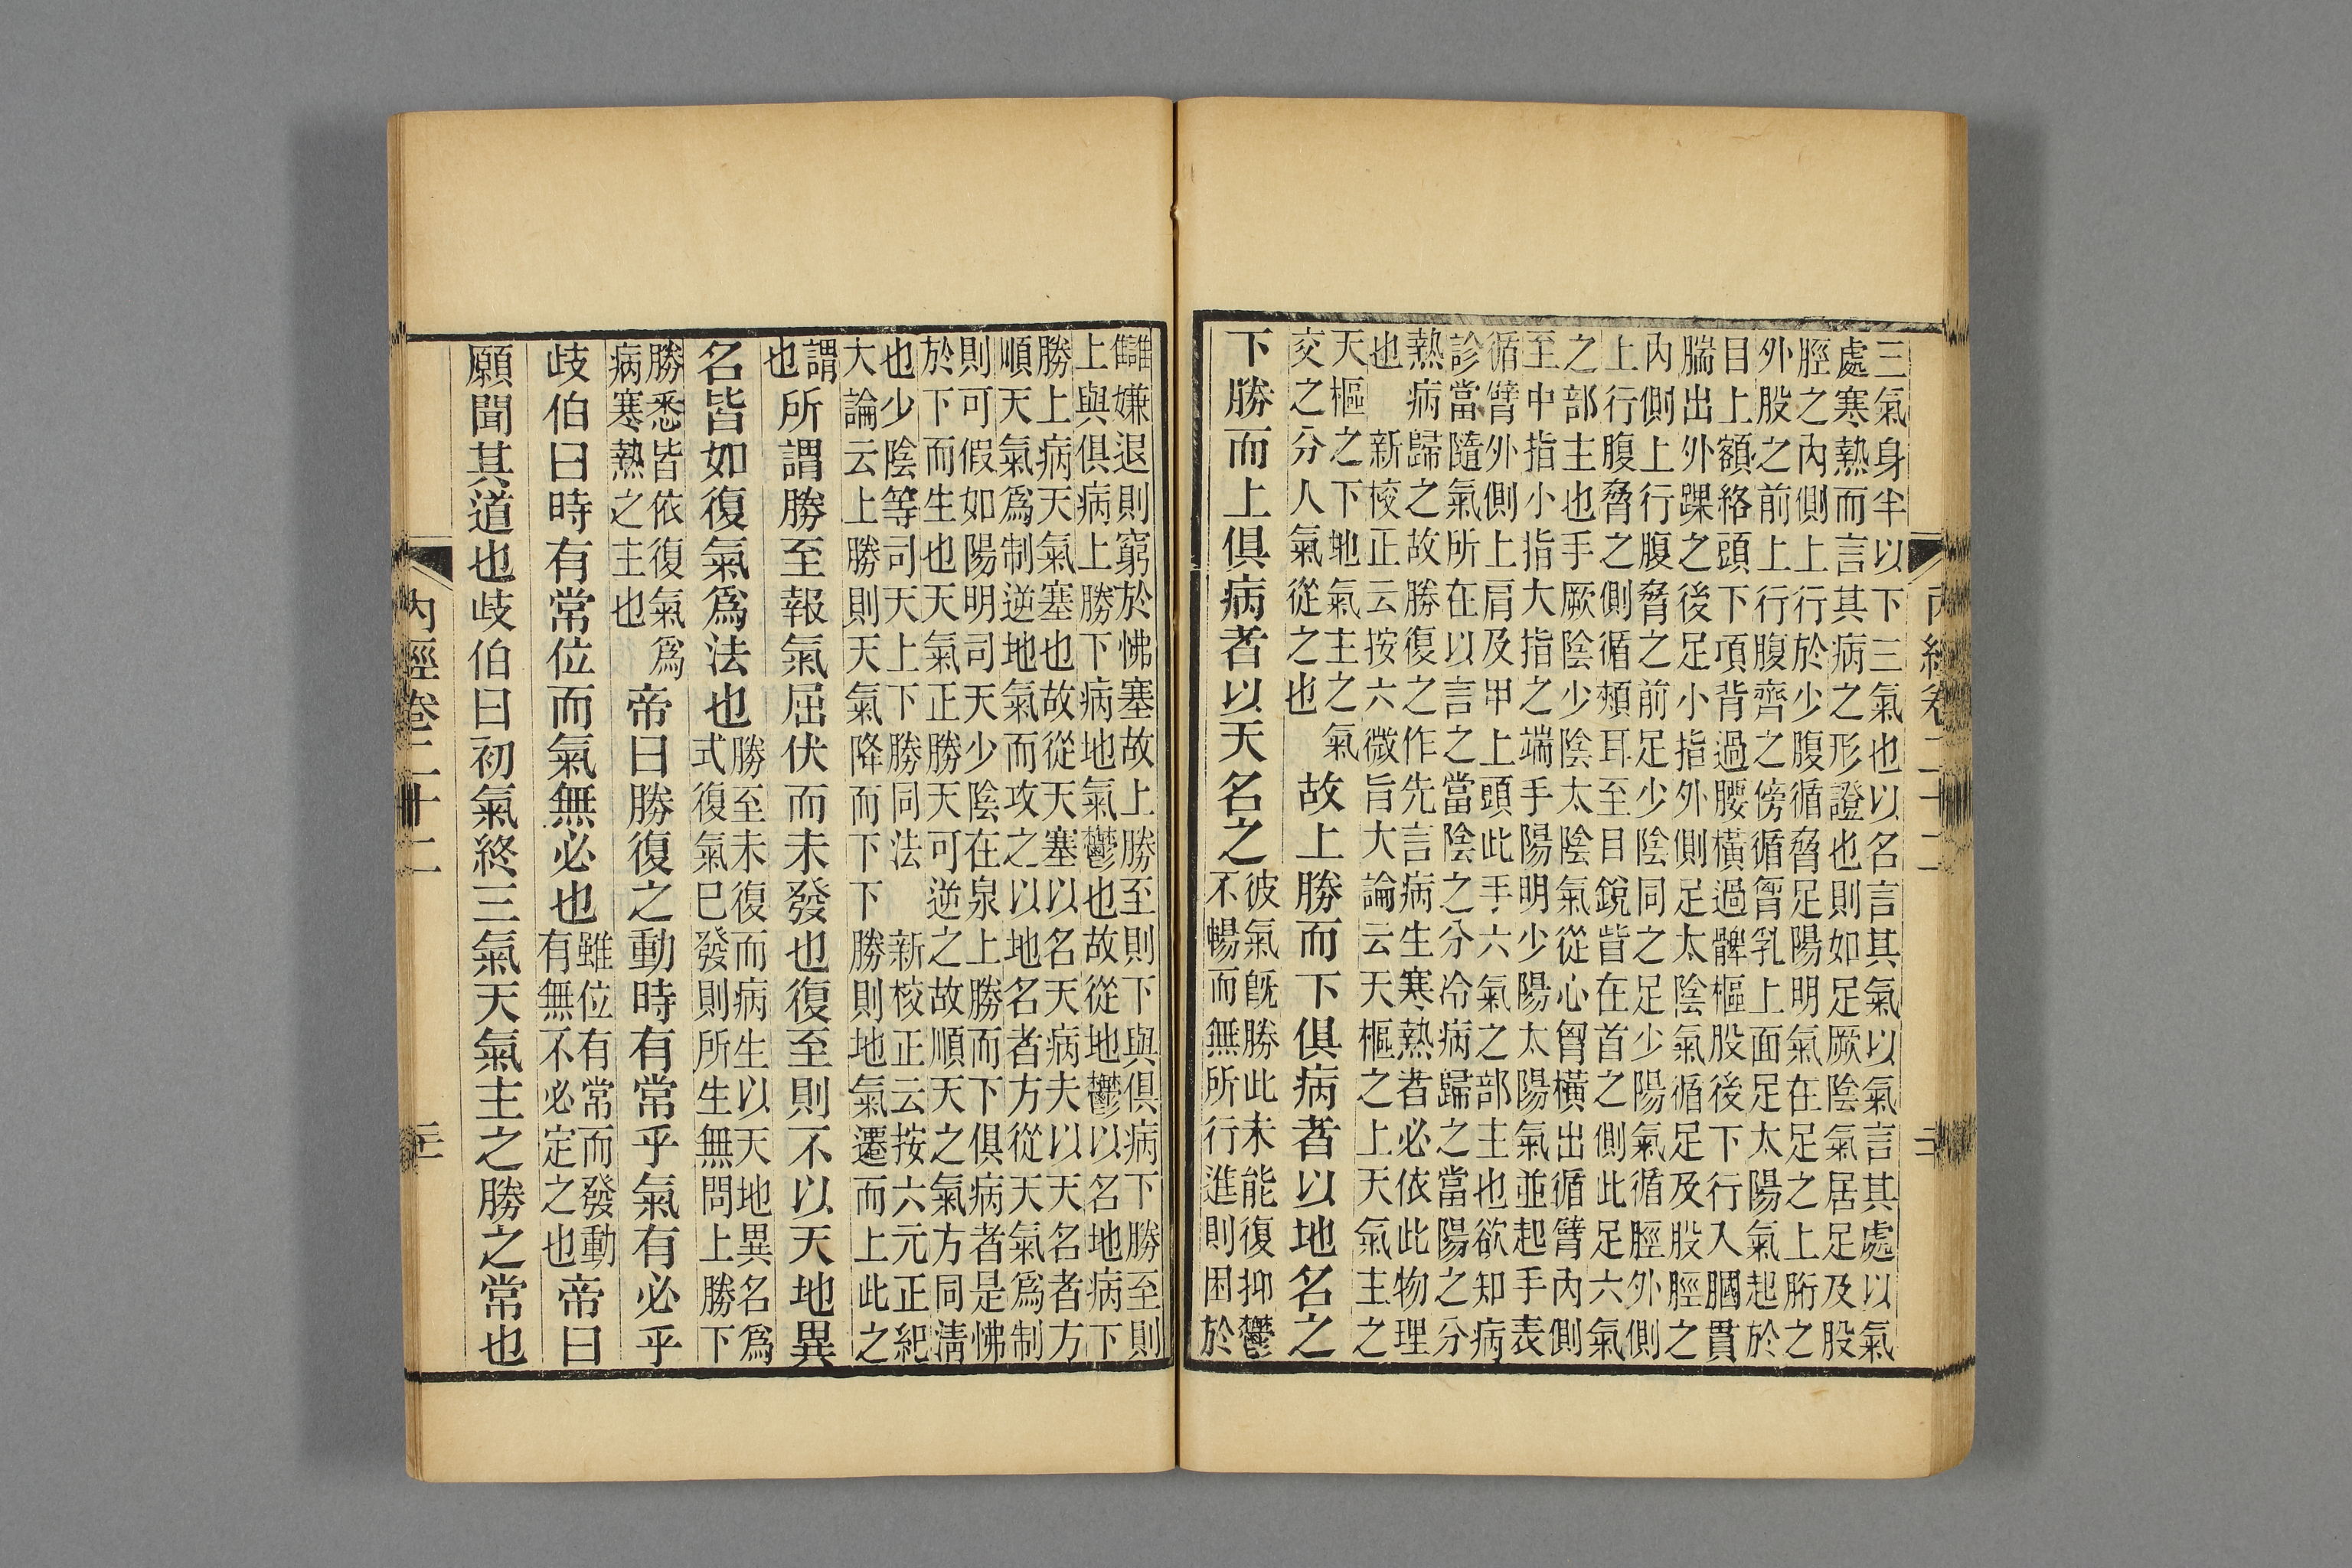 三氣身半以下三氣也以名言其氣以氣言其處以氣
處寒熱而言其病之形證也則如足厥陰氣居足及股
脛之內側上行於少腹循脅足陽明氣在足之上䯒之
外股之前上行腹齊之傍循胷乳上面足太陽氣起於
目上額絡頭下項背過腰橫過髀樞股後下行入膕貫
腨出外踝之後足小指外側足太陰氣循足及股脛之
內側上行腹脅之前足少陰同之足少陽氣循脛外側
上行腹脅之側循頰耳至目銳眥在首之側此足六氣
之部主也手厥陰少陰太陰氣從心胷橫出循臂內側
至中指小指大指之端手陽明少陽太陽氣並起手表
循臂外側上肩及甲上頭此手六氣之部主也欲知病
診當隨氣所在以言之當陰之分冷病歸之當陽之分
熱病歸之故勝復之作先言病生寒熱者必依此物理
也 新校正云按六微旨大論云天樞之上天氣主之
天樞之下地氣主之氣
交之分人氣從之也
故上勝而下俱病者以地名之
下勝而上俱病者以天名之
彼氣既勝此未能復抑鬱
不暢而無所行進則困於
讎嫌退則窮於怫塞故上勝至則下與俱病下勝至則
上與俱病上勝下病地氣鬱也故從地鬱以名地病下
勝上病天氣塞也故從天塞以名天病夫以天名者方
順天氣爲制逆地氣而攻之以地名者方從天氣爲制
則可假如陽明司天少陰在泉上勝而下俱病者是怫
於下而生也天氣正勝天可逆之故順天之氣方同淸
也少陰等司天上下勝同法 新校正云按六元正紀
大論云上勝則天氣降而下下勝則地氣遷而上此之
謂
也
所謂勝至報氣屈伏而未發也復至則不以天地異
名皆如復氣爲法也
勝至未復而病生以天地異名爲
式復氣巳發則所生無問上勝下
勝悉皆依復氣爲
病寒熱之主也
帝曰勝復之動時有常乎氣有必乎
歧伯曰時有常位而氣無必也
雖位有常而發動
有無不必定之也
帝曰
願聞其道也歧伯曰初氣終三氣天氣主之勝之常也
內經卷二十二